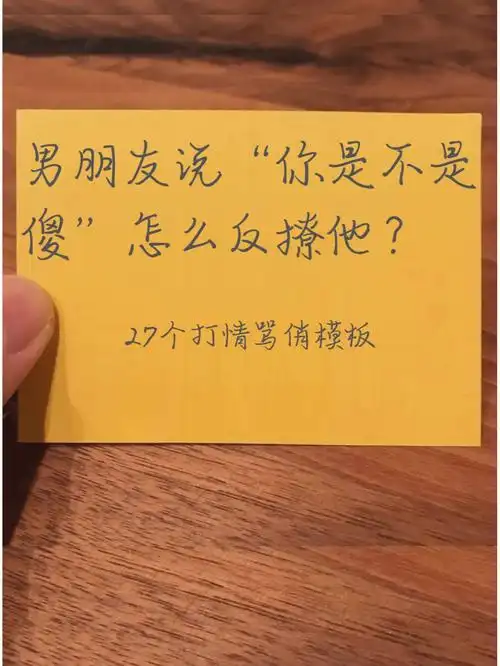 男朋友说“你是不是
傻”怎么反撩他？
27个打情骂俏模板